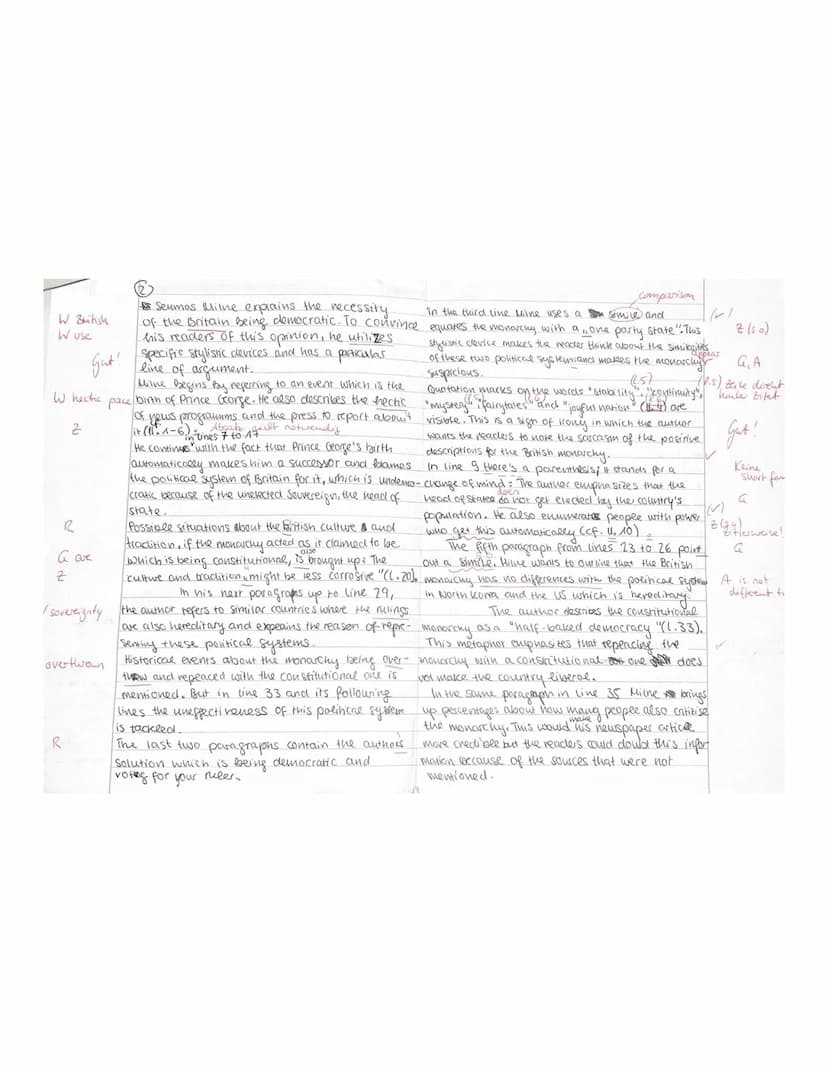 2
Seumas Milne explains the necessity
W British
of the Britain being democratic. To convince
W use
his readers of this opinion, he utilizes
specific stylistic devices and has a particular
Gut!
line of argument.
Milne begins by referring to an event which is the
W hectic pace
birth of Prince George. He also describes the hectic
of news programms and the press to report about
Z
it (ll. 1-6). Absatz nicht notwendig
in lines 7 to 17
He continues with the fact that Prince George's birth
automatically makes him a successor and blames
the political system of Britain for it, which is undemo-
cratic because of the unelected Souvereign, the head of
state.
R
Possible situations about the British culture and
tradition, if the monarchy acted as it claimed to be
G are
which is being constitutional, is also brought up: The
Z
culture and tradition "might be less corrosive "(l. 20).
In his next paragraphs up to line 29,
/ sovereignty
the author refers to similar countries where the rulings
are also hereditary and explains the reason of repre-
senting these political systems.
Historical events about the monarchy being over-
overthrown
thrown and replaced with the constitutional one is
mentioned. But in line 33 and its following
lines the uneffectiveness of this political system
is tackled.
R
The last two paragraphs contain the authors
solution which is being democratic and
voting for your ruler.
comparison
In the third line Milne uses a simile and
(✓)
equates the monarchy with a „one party state". This
Z (s.o)
stylistic device makes the reader think about the similarities
of these two political systems and makes the monarchy appear
G, A
suspicious.
(l.5)
Quotation marks on the words "stability", "continuity",
Zeile direkt
hinter Zitat
"mystery", "fairytales" and "joyful nation" are
visible. This is a sign of irony in which the author
Gut!
wants the readers to note the sarcasm of the positive
descriptions for the British monarchy.
✓
In line 9 there's a parenthesis, it stands for a
Keine
short form
change of mind: The author emphasizes that the
head of states does do not get elected by the country's
G
population. He also enumerates people with power
(✓)
who get this automatically (cf. ll. 10).
Zitierweise!
The fifth paragraph from lines 23 to 26 point
G
out a simile. Milne wants to outline that the British
monarchy has no differences with the political system
A is not
in North Korea and the US which is hereditary.
different
The author describes the constitutional
monarchy as a "half-baked democracy "(l. 33).
This metaphor emphasizes that replacing the
✓
monarchy with a constitutional one does
not make the country liberal.
In the same paragraph in line 35 Milne brings
up percentages about how many people also critisise
the monarchy. This would make his newspaper article
more credible but the readers could doubt this infor
mation because of the sources that were not
mentioned.